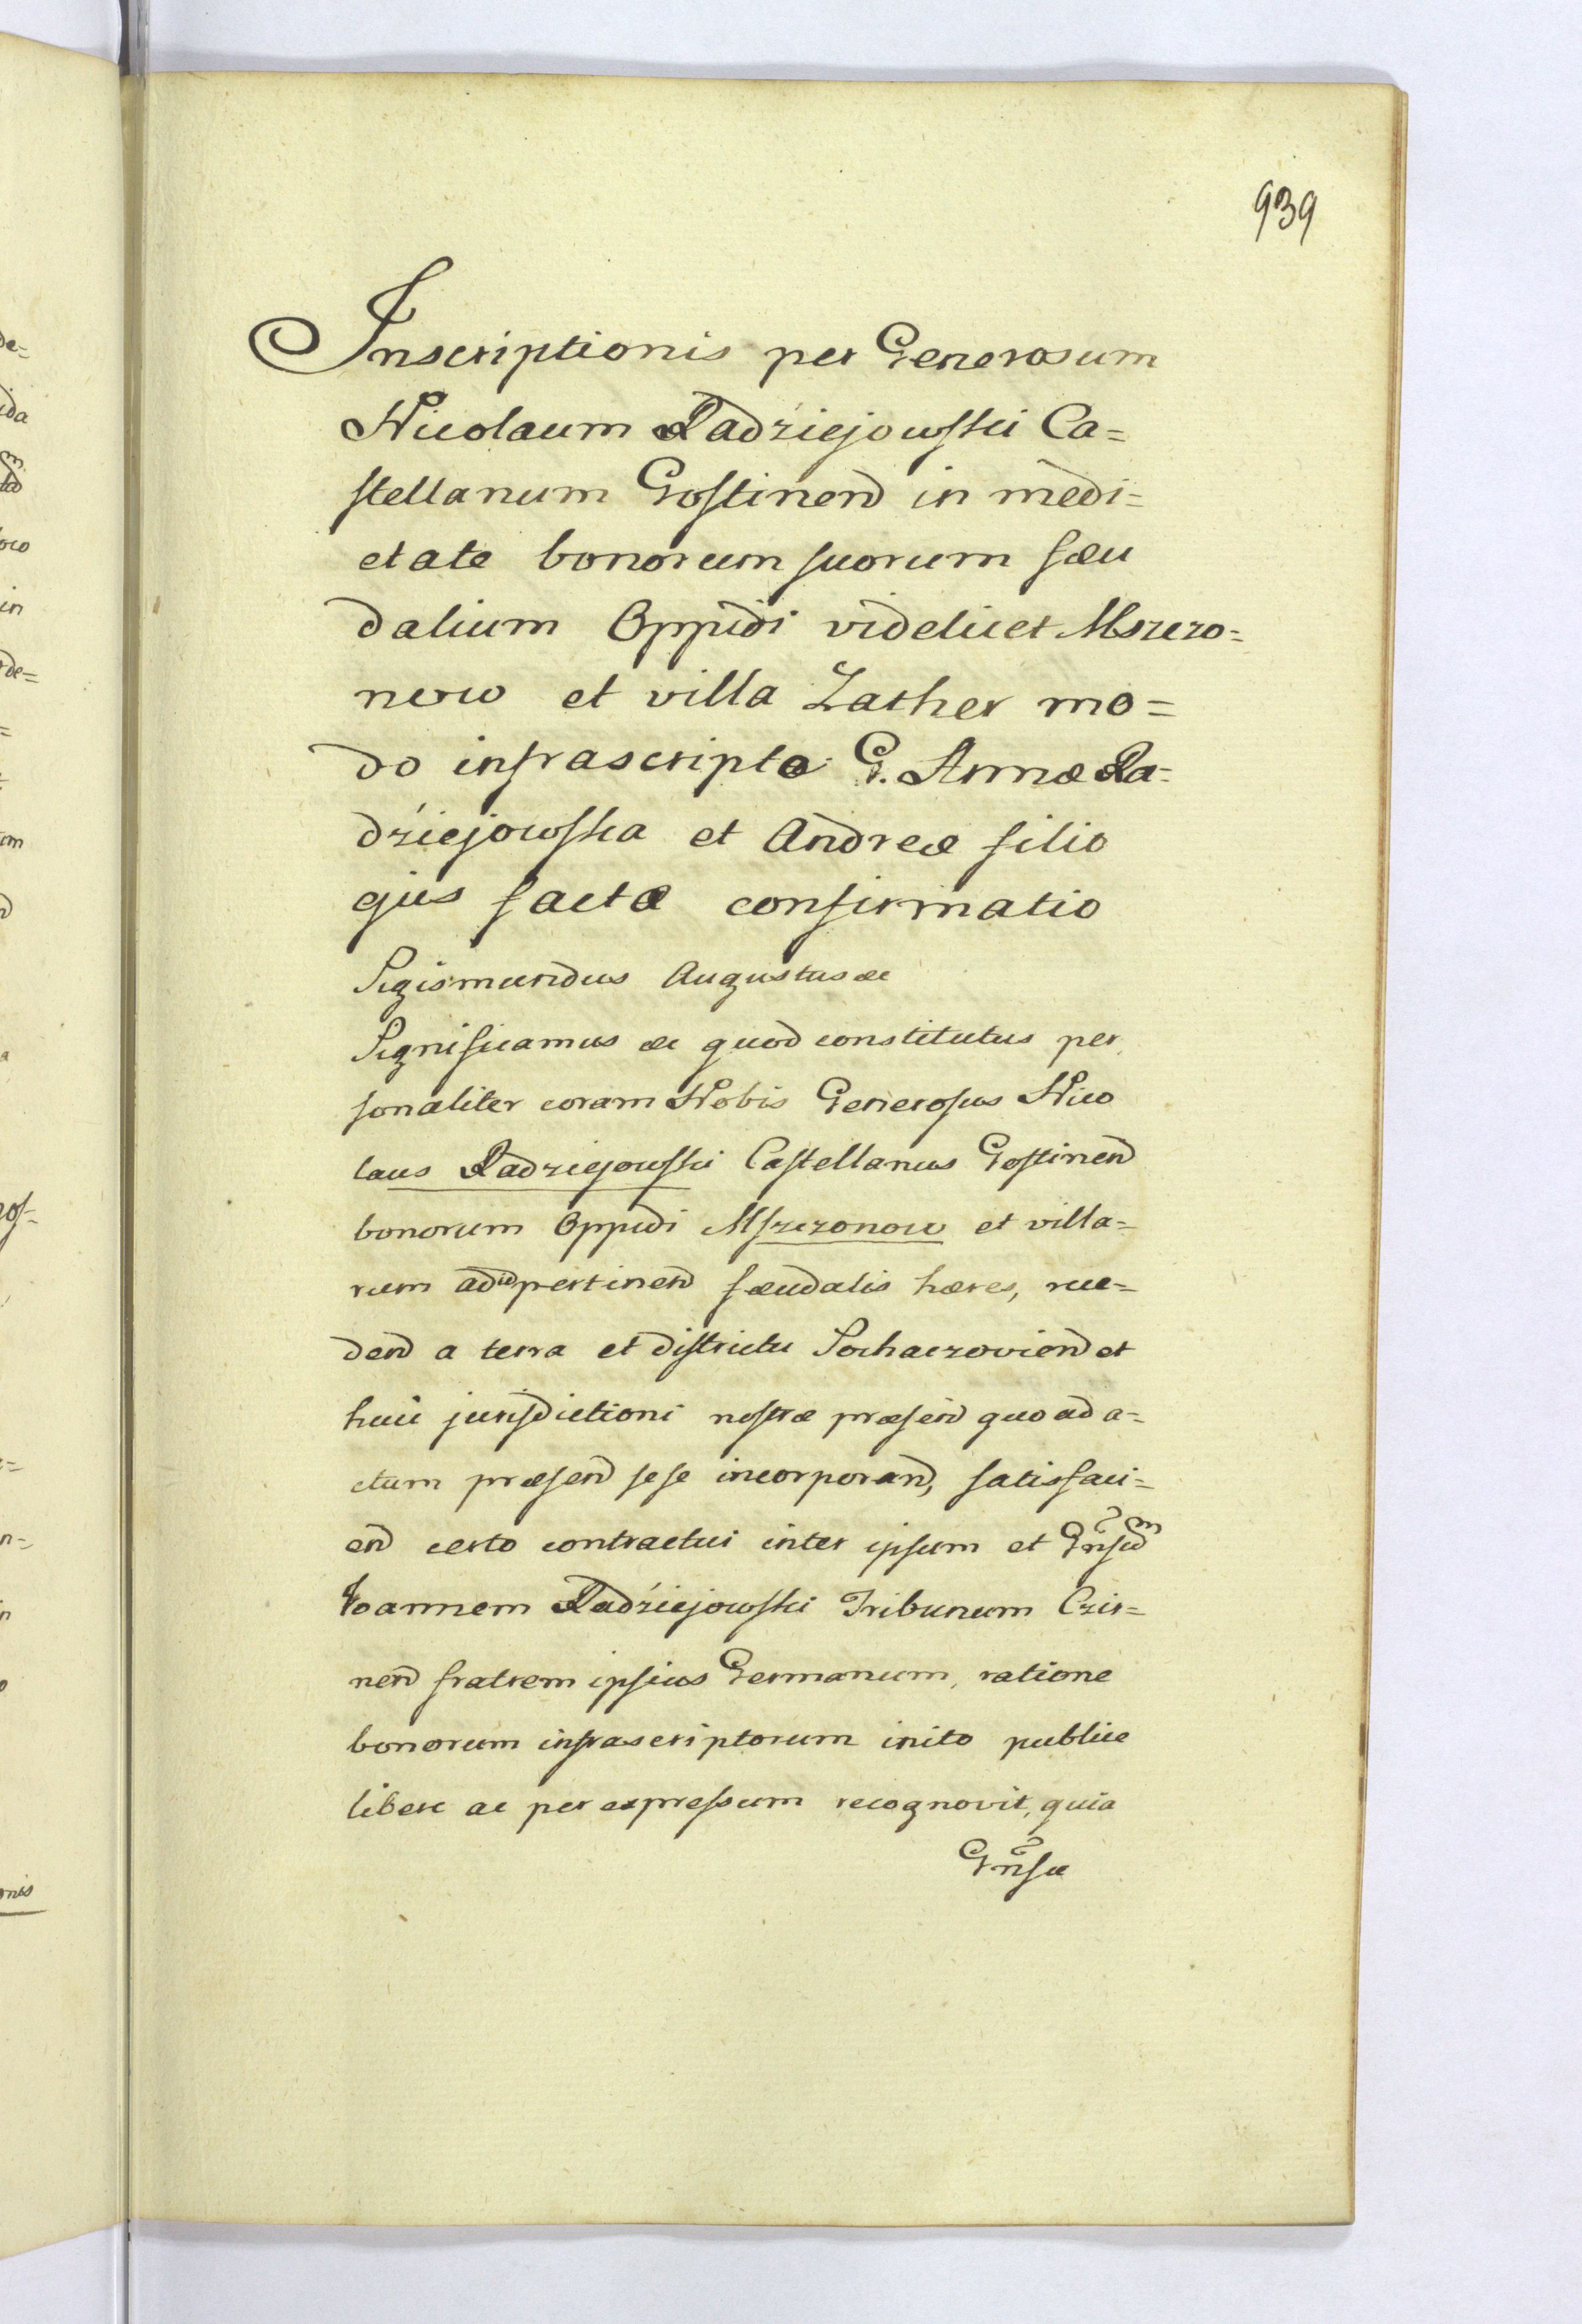 939
Inscriptionis per Generosum
Nicolaum Radziejowski Ca=
stellanum Gostinen̄ in medi=
etate bonorum suorum fœu
dalium Oppidi videlicet Mszczo=
now et villa Zather mo=
do infrascripto G. Annæ Ra=
dziejowska et Andreæ filio
ejus factæ confirmatio
Sigismundus Augustus &c
Significamus &c quod constitutus per
sonaliter coram Nobis Generosus Nico
laus Radziejowski Castellanus Gostinen̄
bonorum Oppidi Mszczonow et villa=
rum ad id pertinen̄ fœudalis hæres, rece=
den̄ a terra et districtu Sochaczovien̄ et
huic jurisdictioni nostræ præsen̄ quo ad a=
ctum præsen̄ sese incorporan̄, satisfaci=
en̄ certo contractui inter ipsum et Gn̄sum
Joannem Radziejowski Tribunum Czir=
nen̄ fratrem ipsius Germanum, ratione
bonorum infrascriptorum inito publice
libere ac per expressum recognovit, quia
Gn̄sæ
de=
ida
in
de=
um
a
n=
onis